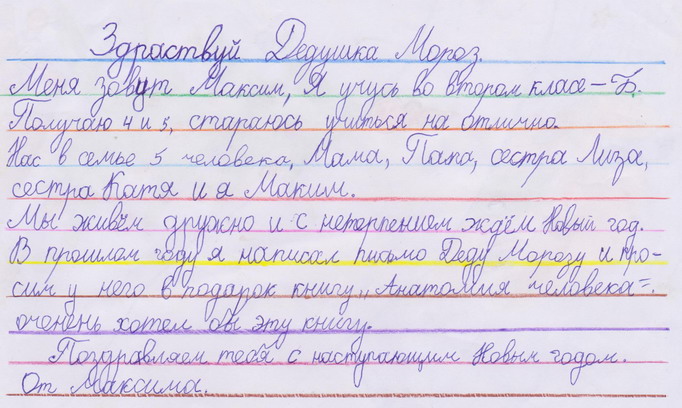 Здраствуй Дедушка Мороз.
Меня зовут Максим, Я учусь во втором класе – Б.
Получаю 4 и 5, стараюсь учиться на отлично.
Нас в семье 5 человека, Мама, Папа, сестра Лиза,
сестра Катя и я Маким.
Мы живём дружно и с нетерпением ждём Новый год.
В прошлом году я написал письмо Деду Морозу и про-
сим у него в подарок книгу „Анатомия человека“.
очень хотел бы эту книгу.
Поздравляем тебя с наступающим Новым годом.
От Максима.